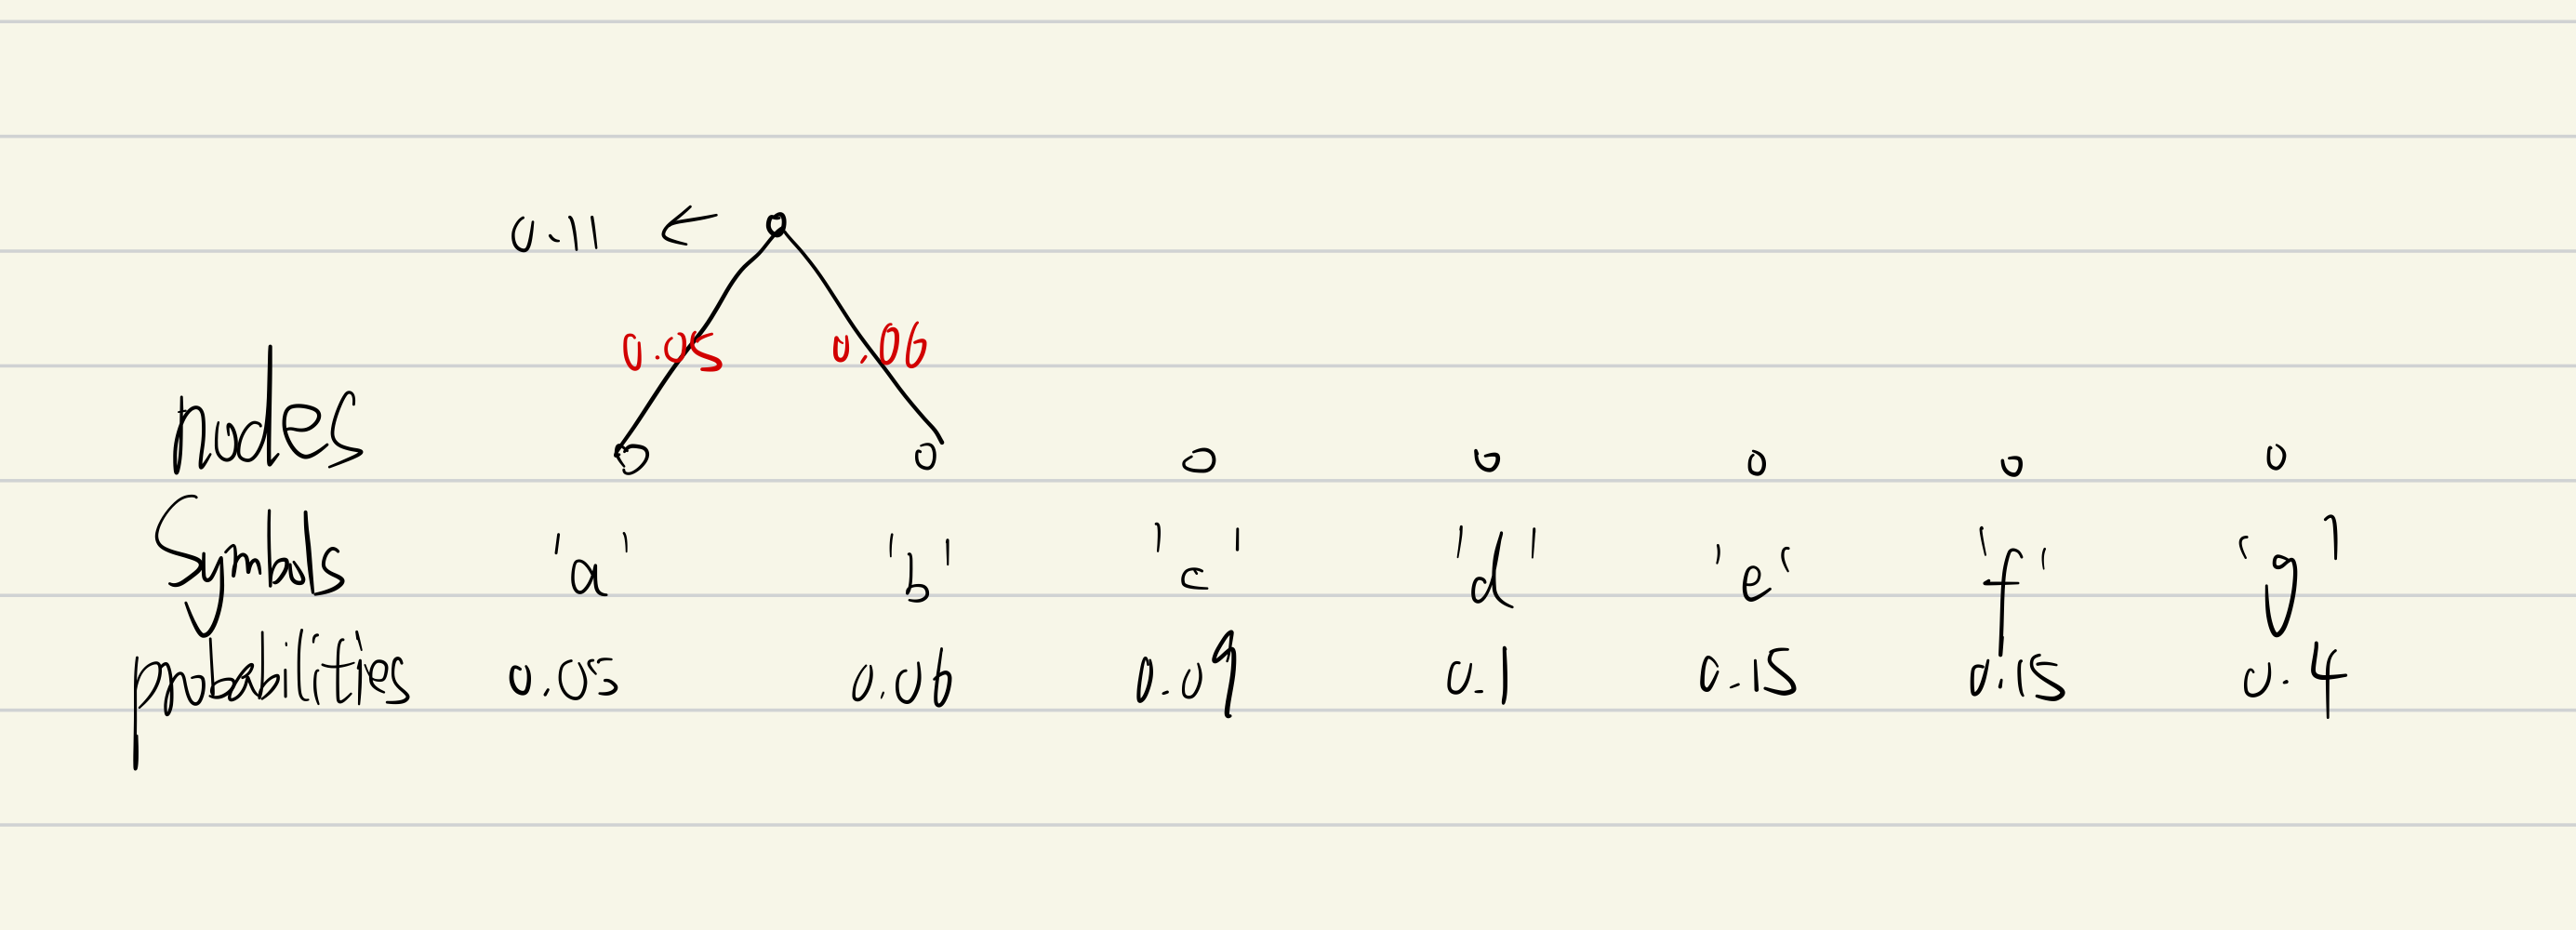 0.11 ←
0.05 0.06
nodes
Symbols 'a' 'b' 'c' 'd' 'e' 'f' 'g'
probabilities 0.05 0.06 0.09 0.1 0.15 0.15 0.4